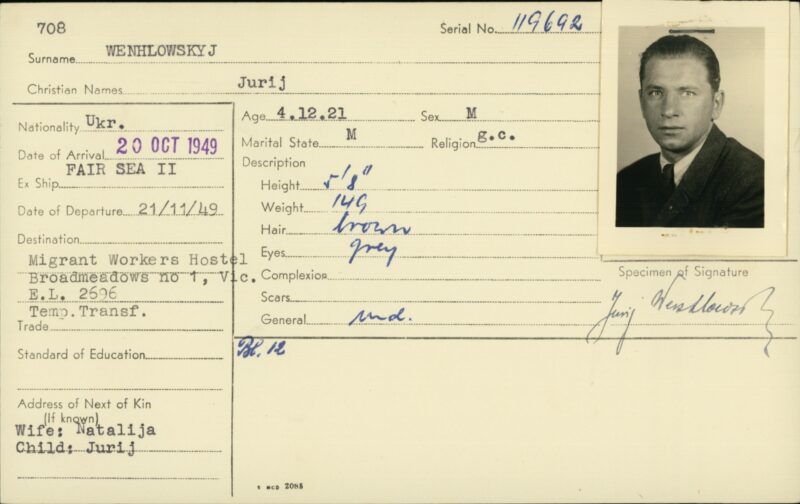 708
Serial No. 119692
Surname WENHLOWSKYJ
Christian Names Jurij
Nationality Ukr.
Date of Arrival 20 OCT 1949
FAIR SEA II
Ex Ship
Date of Departure 21/11/49
Destination
Migrant Workers Hostel
Broadmeadows no 1, Vic.
E.L. 2696
Temp.Transf.
Trade
Standard of Education
Address of Next of Kin
(If known)
Wife: Natalija
Child: Jurij
Age 4.12.21 Sex M
Marital State M Religion g.c.
Description
Height 5'8"
Weight 149
Hair brown
Eyes grey
Complexion
Scars
General und.
Bl. 12
Specimen of Signature
Jurij Wenhlowskyj
MCD 2088